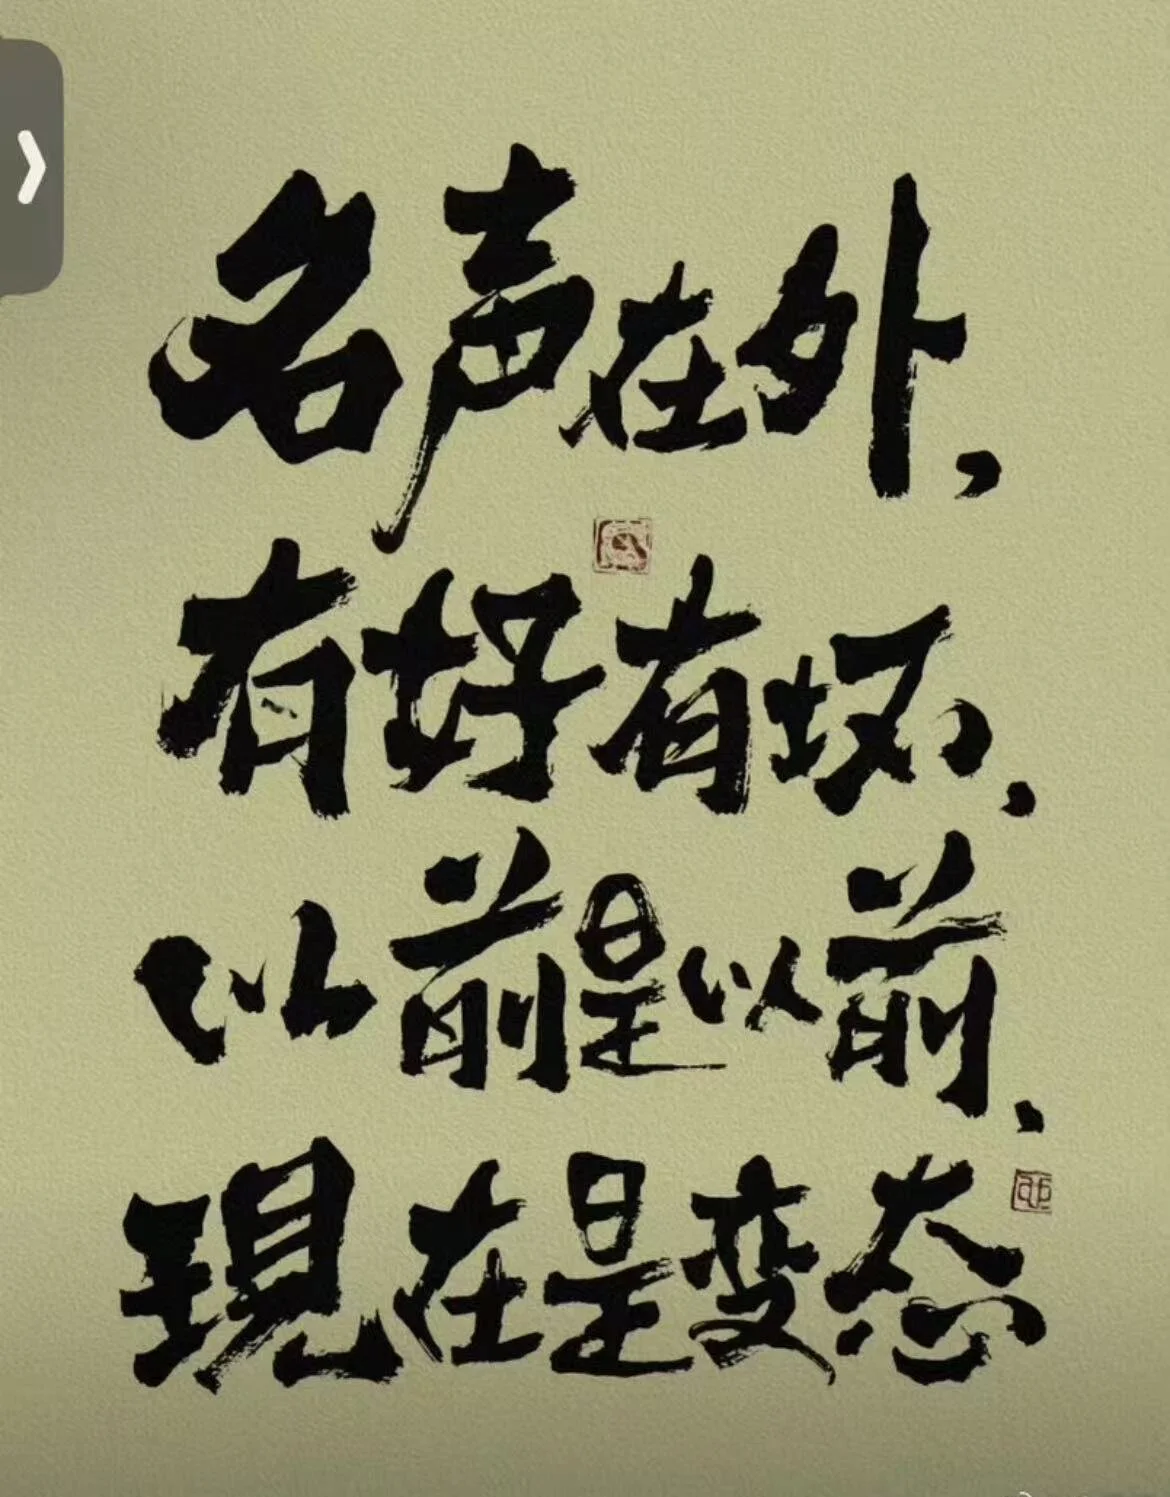 名声在外，
有好有坏，
以前是以前，
現在是变态